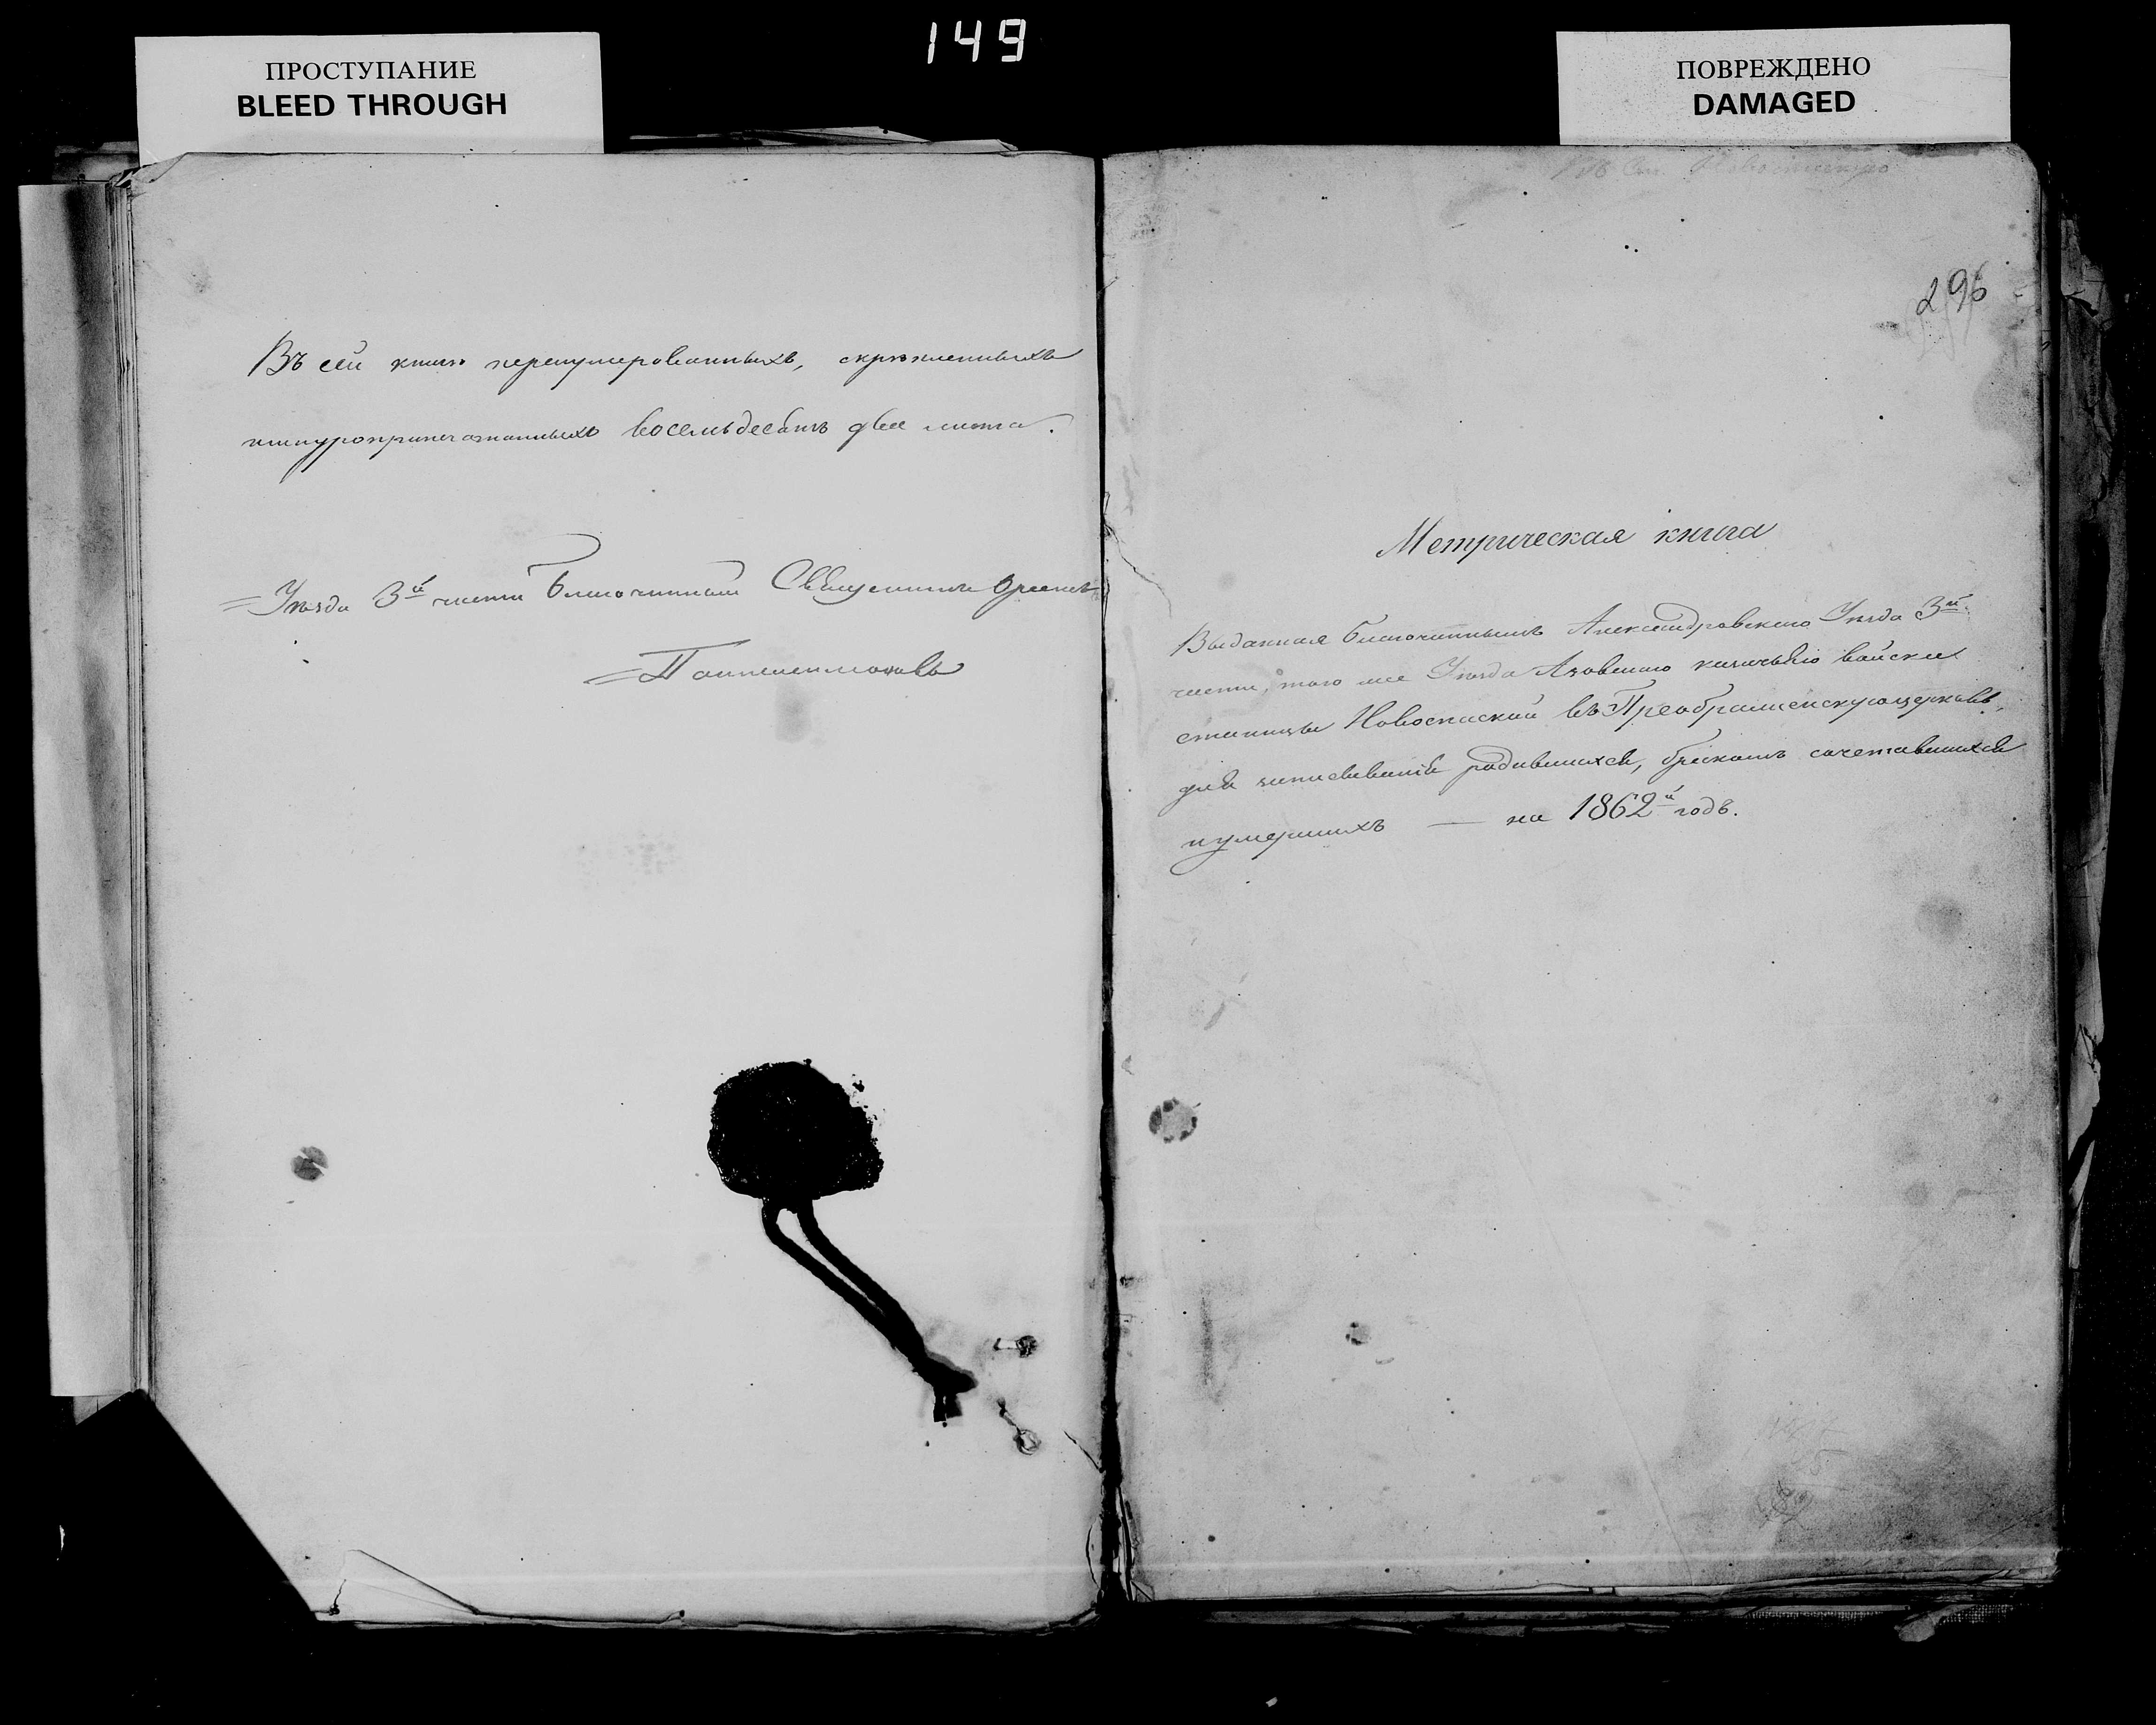 149
ПРОСТУПАНИЕ
BLEED THROUGH
ПОВРЕЖДЕНО
DAMAGED
Въ сей книгѣ перенумерованныхъ, скрѣпленныхъ
шнуропрепечатанныхъ восемьдесятъ два листа.
Уѣзда 3й части Благочинный Священникъ
296
Метрическая книга
Выданная благочиннымъ Александровскаго Уѣзда 3й
части, того же Уѣзда Азовскаго казачьяго войска
станицы Новоспаской въ Преображенскую церковь,
для записыванія родившихся, бракомъ сочетавшихся
и умершихъ — на 1862й годъ.